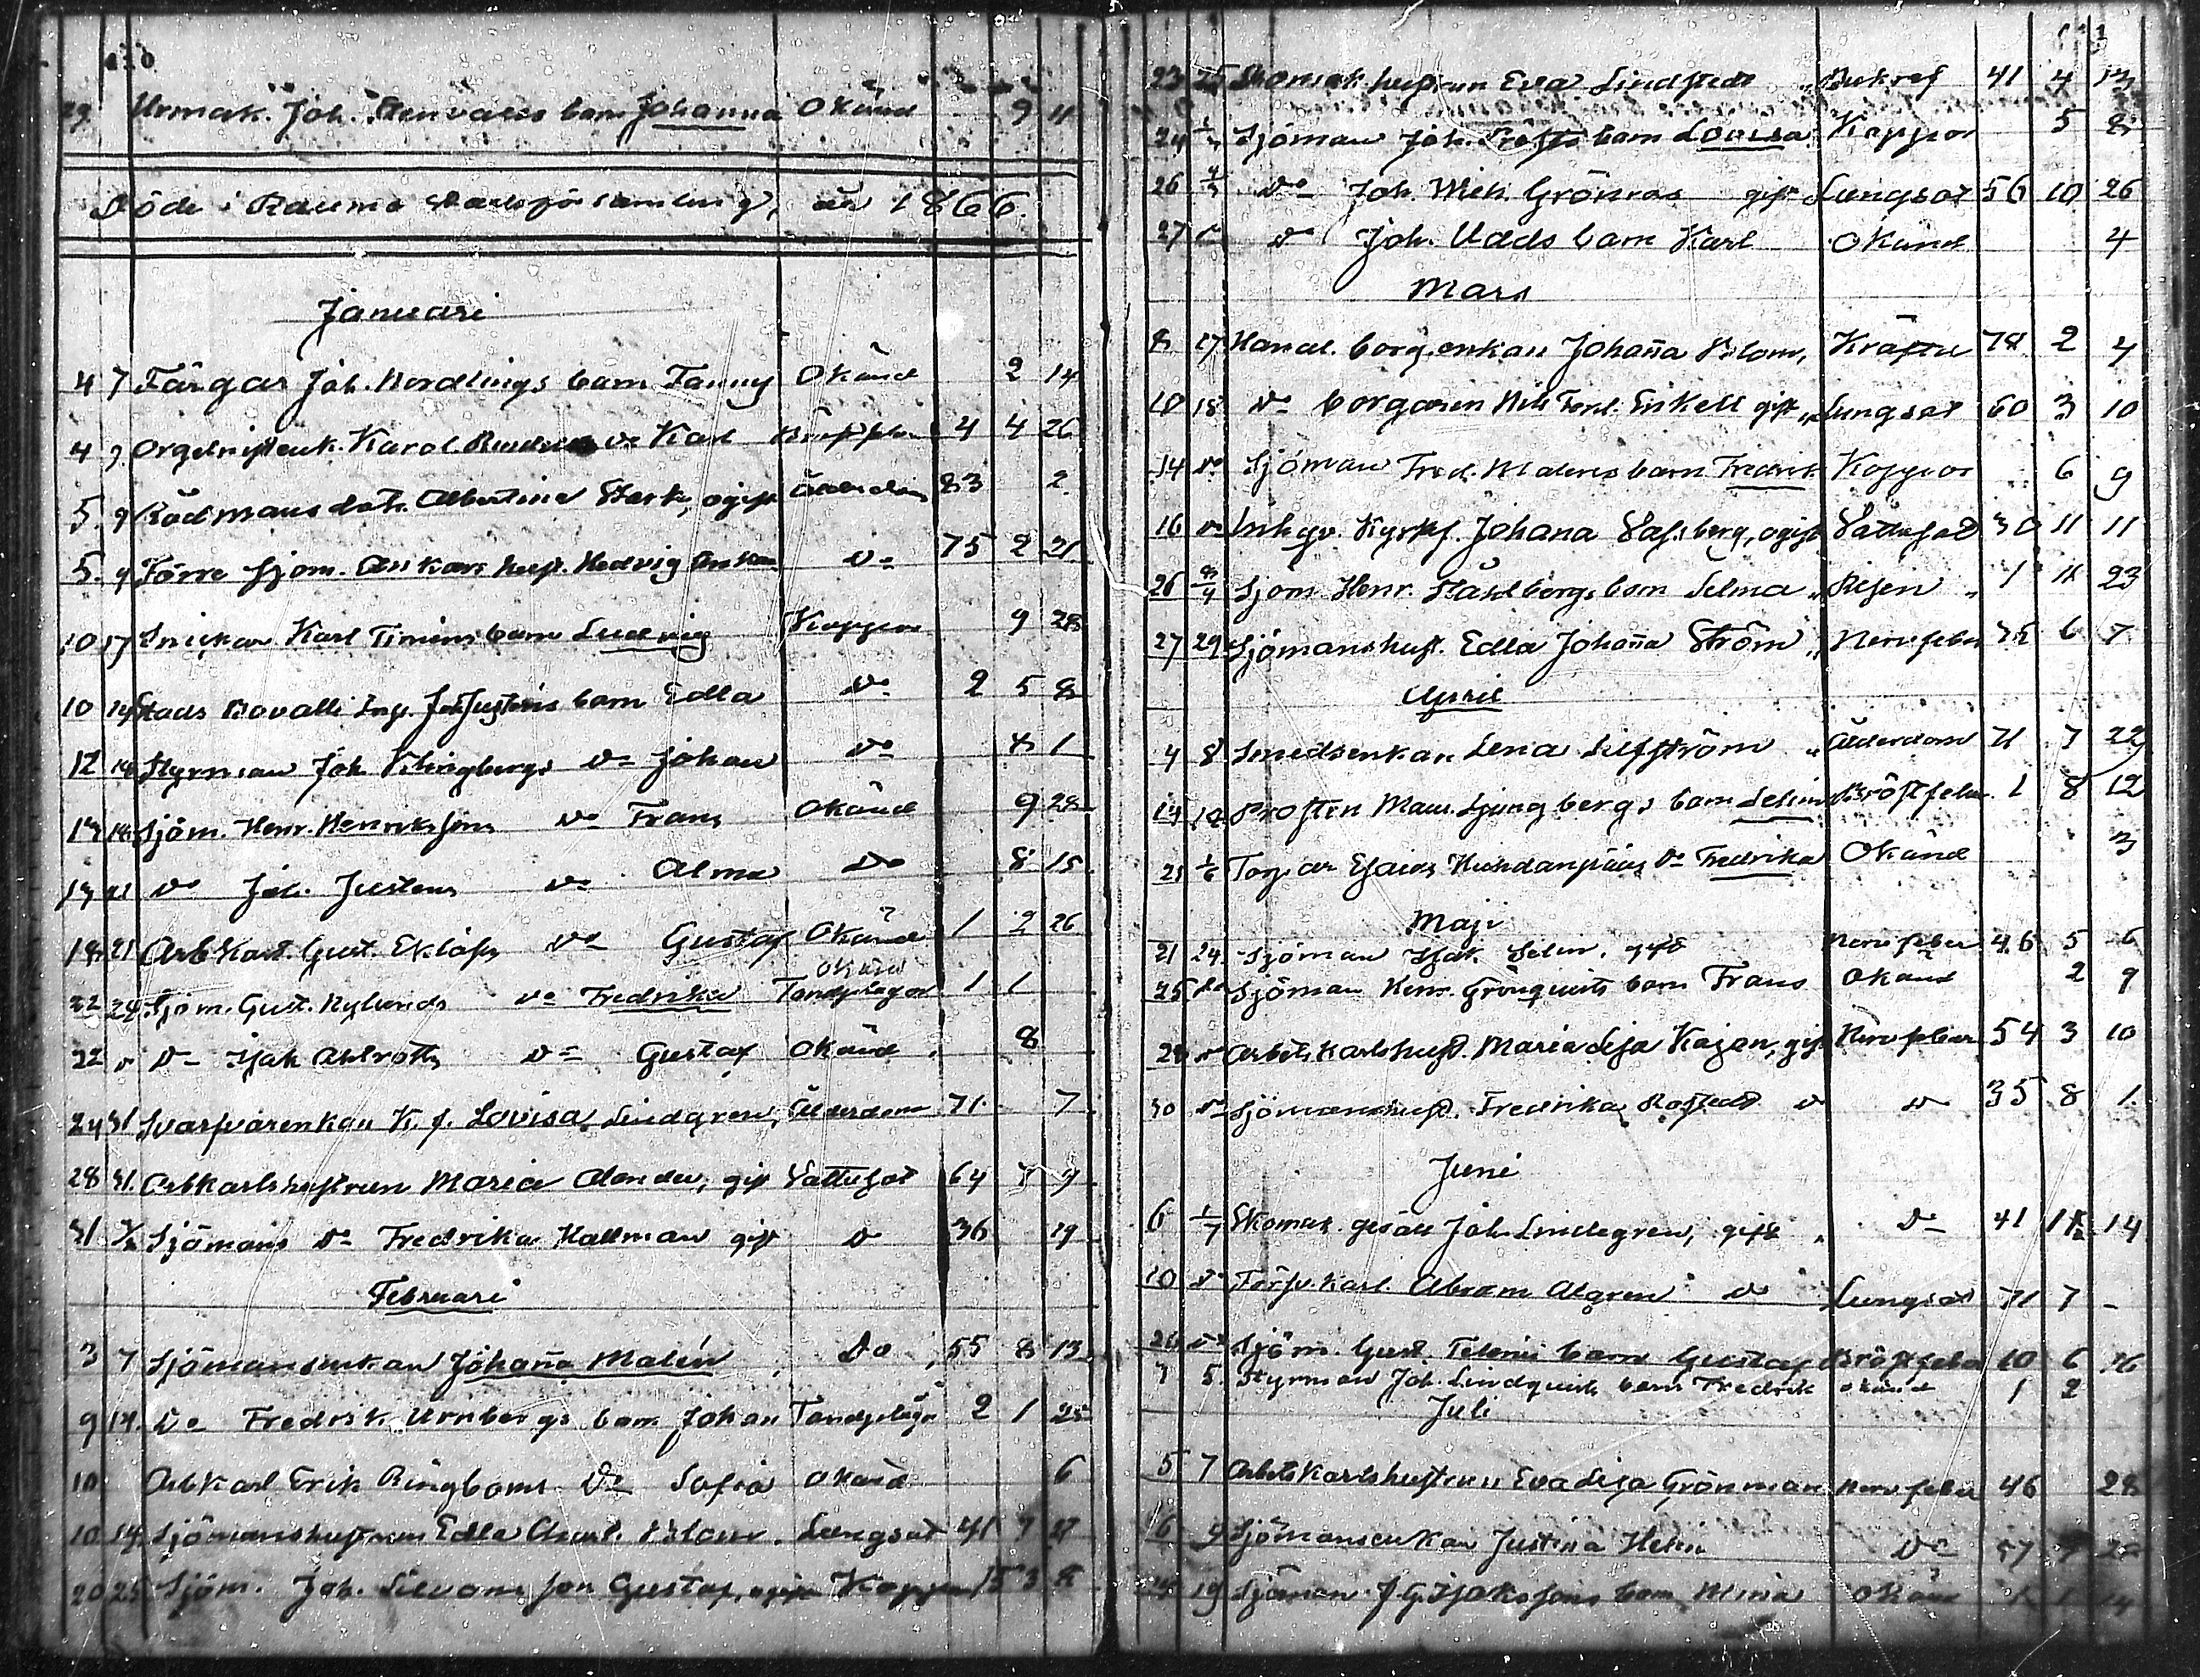 29 Urmak. Joh. barn Johanna Okänd 9 11
Döde i Raumo Stadsförsamling, år 1866.
Januari
4 7 Färgar Joh. Nordlings barn Fanny Okänd 2 14
4 9 Orgelnistenk. Karol. do Karl 4 4 26
5 9 Rådmans dotr. Albertina Stark, ogift Ålderdom 83 2
5 9 Förre sjöm. Ankars hust. Hedvig Ankar do 75 2 21
10 17 Snickar Karl Timins barn Ludvig Koppor 9 28
10 14 Stads barn Edla do 2 5 8
12 14 Styrman Joh. Klingbergs do Johan do 8 1
13 18 Sjöm. Henr. Henrikssons do Frans Okänd 9 28
13 21 do Joh. Justens do Alma Do 8 15
18 21 Arbkarl. Gust. Eklöfs do Gustaf Okänd 1 2 26
22 24 Sjöm. Gust. Nylunds do Fredrika Okänd Tandplågor 1 1
22 do do Isak Ahlroths do Gustaf Okänd 8
24 31 Svarfvarenkan K. f. Lovisa Lindgren, Ålderdom 71 7
28 31 Arbkarlshustrun Maria Alander, gift Vattusot 64 7 9
31 Sjömans do Fredrika Hallman gift do 36 19
Februari
3 7 Sjömansenkan Johanna Malén Do 55 8 13
9 14 Do Fredrik Urnbergs barn Johan Tandplågor 2 1 25
10 Arbkarl Erik Ringboms Do Sofia Okänd 6
10 14 Sjömanshustrun Edla Charl. Blom. Lungsot 41 7 27
20 25 Sjöm. Joh. son Gustaf, ogift Koppor 15 3 8
23 25 Skomak. hustrun Eva Lindstedt 41 4 13
24 1/3 Sjöman Joh. barn Lovisa Koppor 5 8
26 4/3 do Joh. Mich. Grönroos gift Lungsot 56 10 26
27 do Joh. Udds barn Karl Okänd 4
Mars
8 17 Handl. borg. enkan Johanna Blom, Kräfta 78 2 4
10 18 do borgaren Nils Ferd. Enkell gift Lungsot 60 3 10
14 do Sjöman Fred. barn Fredrik Koppor 6 9
16 do Johana ogift Vattusot 30 11 11
26 8/4 Sjöm. Henr. Ståhlbergs barn Selma 1 11 23
27 29 Sjömanshust. Edla Johanna Ström Nervfeber 35 6 7
April
4 8 Smedsenkan Lena Lilfström Ålderdom 71 7 22
14 Prosten Ljungbergs barn Selim Bröstfeber 1 8 12
21 1/6 Torpar Esaias do Fredrika Okänd 3
Maji
21 24 Sjöman Isak Selin, gift Nervfeber 46 5 6
25 do Sjöman Henr. Grönquists barn Frans Okänd 2 9
28 do Arbetskarlshust. Maria Lisa Kajan, gift Nervfeber 54 3 10
30 do Sjömanshust. Fredrika do do 35 8 1
Juni
6 1/7 Skomak. gesäll Joh. Lindegren, gift do 41 11 14
10 do Abram Algren do Lungsot 71 7 -
26 do Sjöm. Gust. Telenii barn Gustaf Bröstfeber 10 6 26
7 8 Styrman Joh. Lindquists barn Fredrik okänd 1 2
Juli
5 7 Arbetskarlshustrun Eva Lisa Grönman Nervfeber 46 28
6 9 Sjömansenkan Justina Helin Do 57
14 19 Sjöman J. G. Isakssons barn Okänd